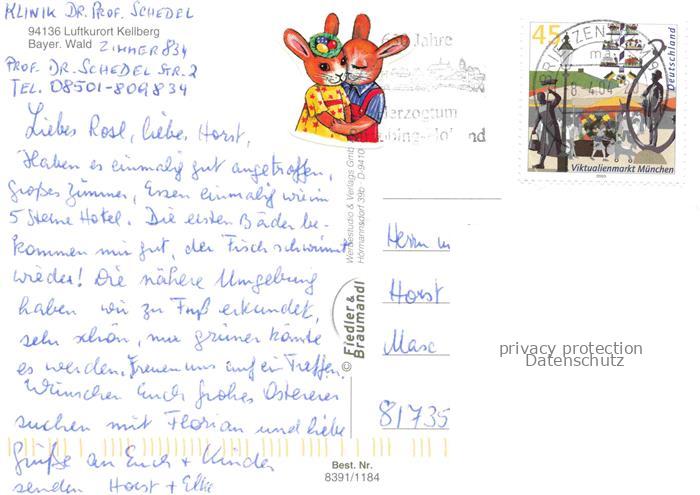 KLINIK DR. PROF. SCHEDEL
94136 Luftkurort Kellberg
Bayer. Wald ZIMMER 834
PROF. DR. SCHEDEL STR. 2
TEL. 08501-809834
Liebes Rosl, lieber Horst,
Haben es einmalig gut angetroffen,
großes Zimmer, Essen einmalig wie im
5 Sterne Hotel. Die ersten Bäder be-
kommen mir gut, der Fisch schwimmt
wieder! Die nähere Umgebung
haben wir zu Fuß erkundet,
sehr schön, nur grüner könnte
es werden. Freuen uns auf ein Treffen.
Wünschen Euch frohes Ostereier
suchen mit Florian und liebe
Grüße an Euch + Kinder
senden Horst + Elke
Jahre
Herzogtum
BRIEFZENTRUM
8.4.04
45
Deutschland
Viktualienmarkt München
2003
Werbestudio & Verlags GmbH
Hörmannsdorf 39b · D-9410
© Fiedler & Braumandl
Herrn
Horst
81735
privacy protection
Datenschutz
Best. Nr.
8391/1184